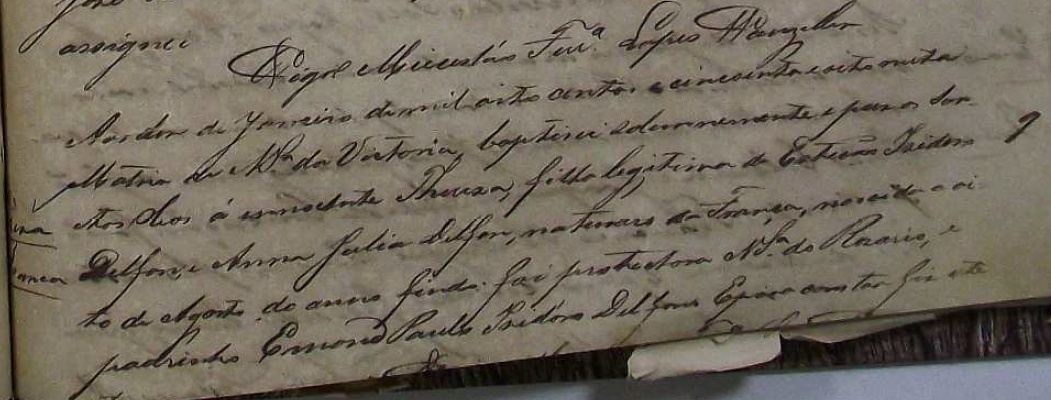 assignei
Vigrº Miceslás Ferrª Lopes Wanzeller
Aos dez de Janeiro de mil oito centos e cincoenta e oito nesta
Matriz de N. Sª da Victoria, baptisei solemnemente e puz os San
tos Oleos á innocente Thereza, filha legitima de Estevão Isidoro
Delfon, e Anna Julia Delfon, naturaes da França, nascida a oi
to de Agosto do anno findo: foi protectora N. Sª do Rosario, e
padrinho Paulo Isidoro Delfon; E para constar fiz este
anca